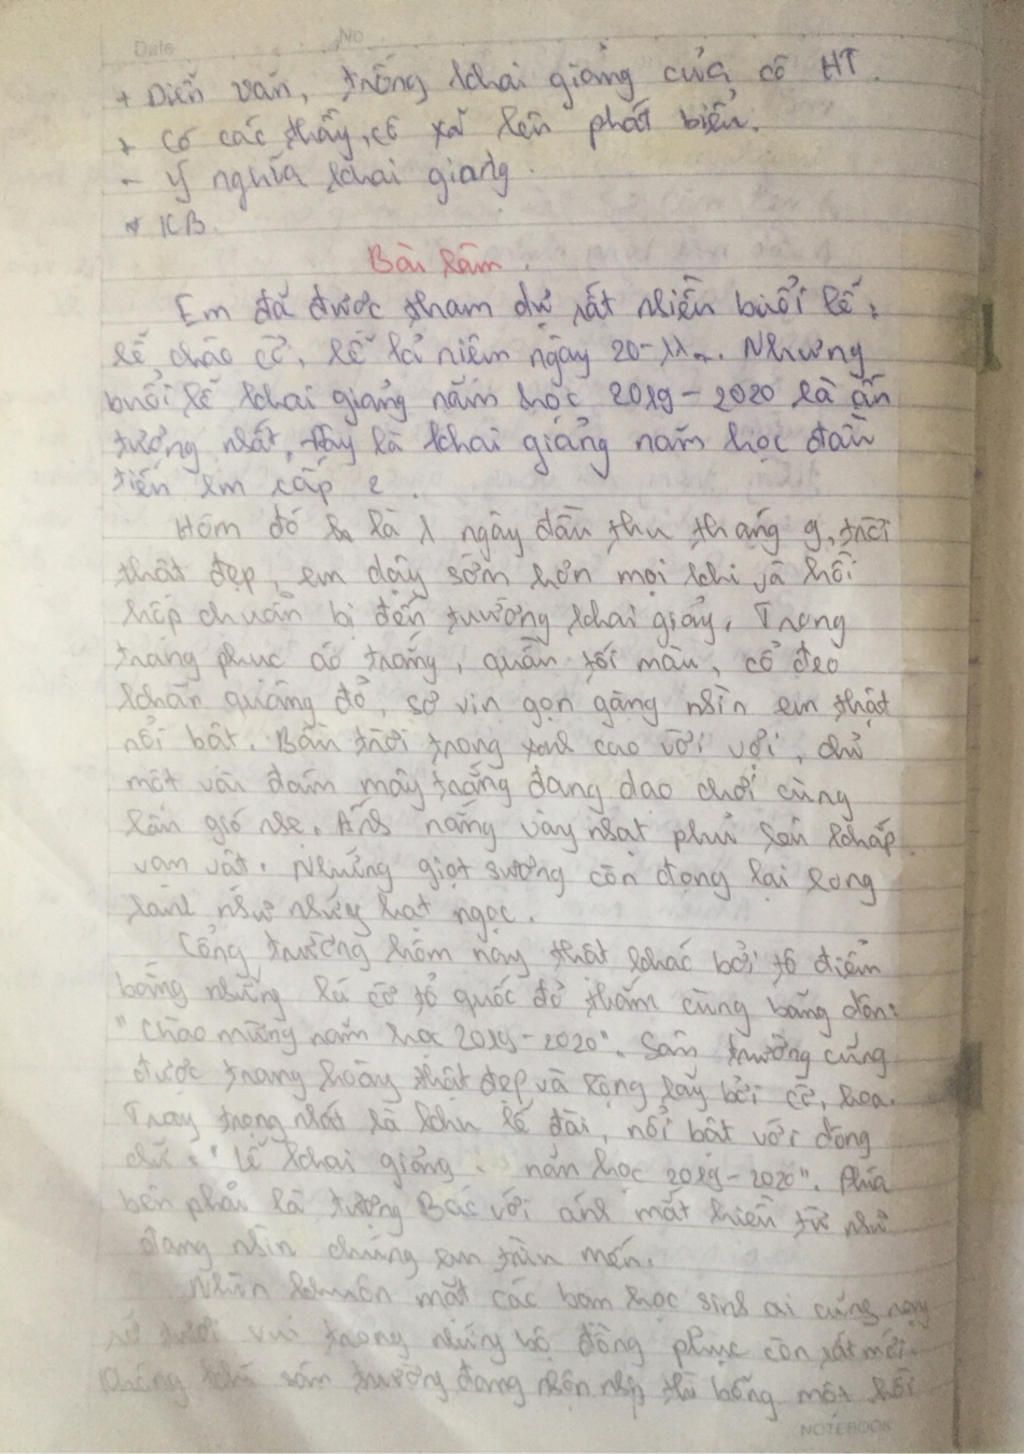 Date No
+ Diễn văn, trống khai giảng của cô HT.
+ Có các thầy, cô xã lên phát biểu.
- Ý nghĩa khai giảng.
* KB.
Bài làm.
Em đã được tham dự rất nhiều buổi lễ:
lễ chào cờ, lễ kỉ niệm ngày 20-11... Nhưng
buổi lễ khai giảng năm học 2019-2020 là ấn
tượng nhất, đây là khai giảng năm học đầu
tiên em cấp 2.
Hôm đó là 1 ngày đầu thu tháng 9, trời
thật đẹp, em dậy sớm hơn mọi khi và hồi
hộp chuẩn bị đến trường khai giảng. Trong
trang phục áo trắng, quần tối màu, cổ đeo
khăn quàng đỏ, sơ vin gọn gàng nhìn em thật
nổi bật. Bầu trời trong xanh cao vời vợi, chỉ
một vài đám mây trắng đang dạo chơi cùng
làn gió nhẹ. Ánh nắng vàng nhạt phủ lên khắp
vạn vật. Những giọt sương còn đọng lại long
lanh như những hạt ngọc.
Cổng trường hôm nay thật khác bởi tô điểm
bằng những lá cờ tổ quốc đỏ thắm cùng băng dôn:
"Chào mừng năm học 2019-2020". Sân trường cũng
được trang hoàng thật đẹp và lộng lẫy bởi cờ, hoa.
Trang trọng nhất là khu lễ đài, nổi bật với dòng
chữ: "Lễ khai giảng năm học 2019-2020". Phía
bên phải là tượng Bác với ánh mắt hiền từ như
đang nhìn chúng em trìu mến.
Nhìn khuôn mặt các bạn học sinh ai cũng rạng
rỡ tươi vui trong những bộ đồng phục còn rất mới.
Không khí sân trường đang nhộn nhịp thì bỗng một hồi
NOTEBOOK